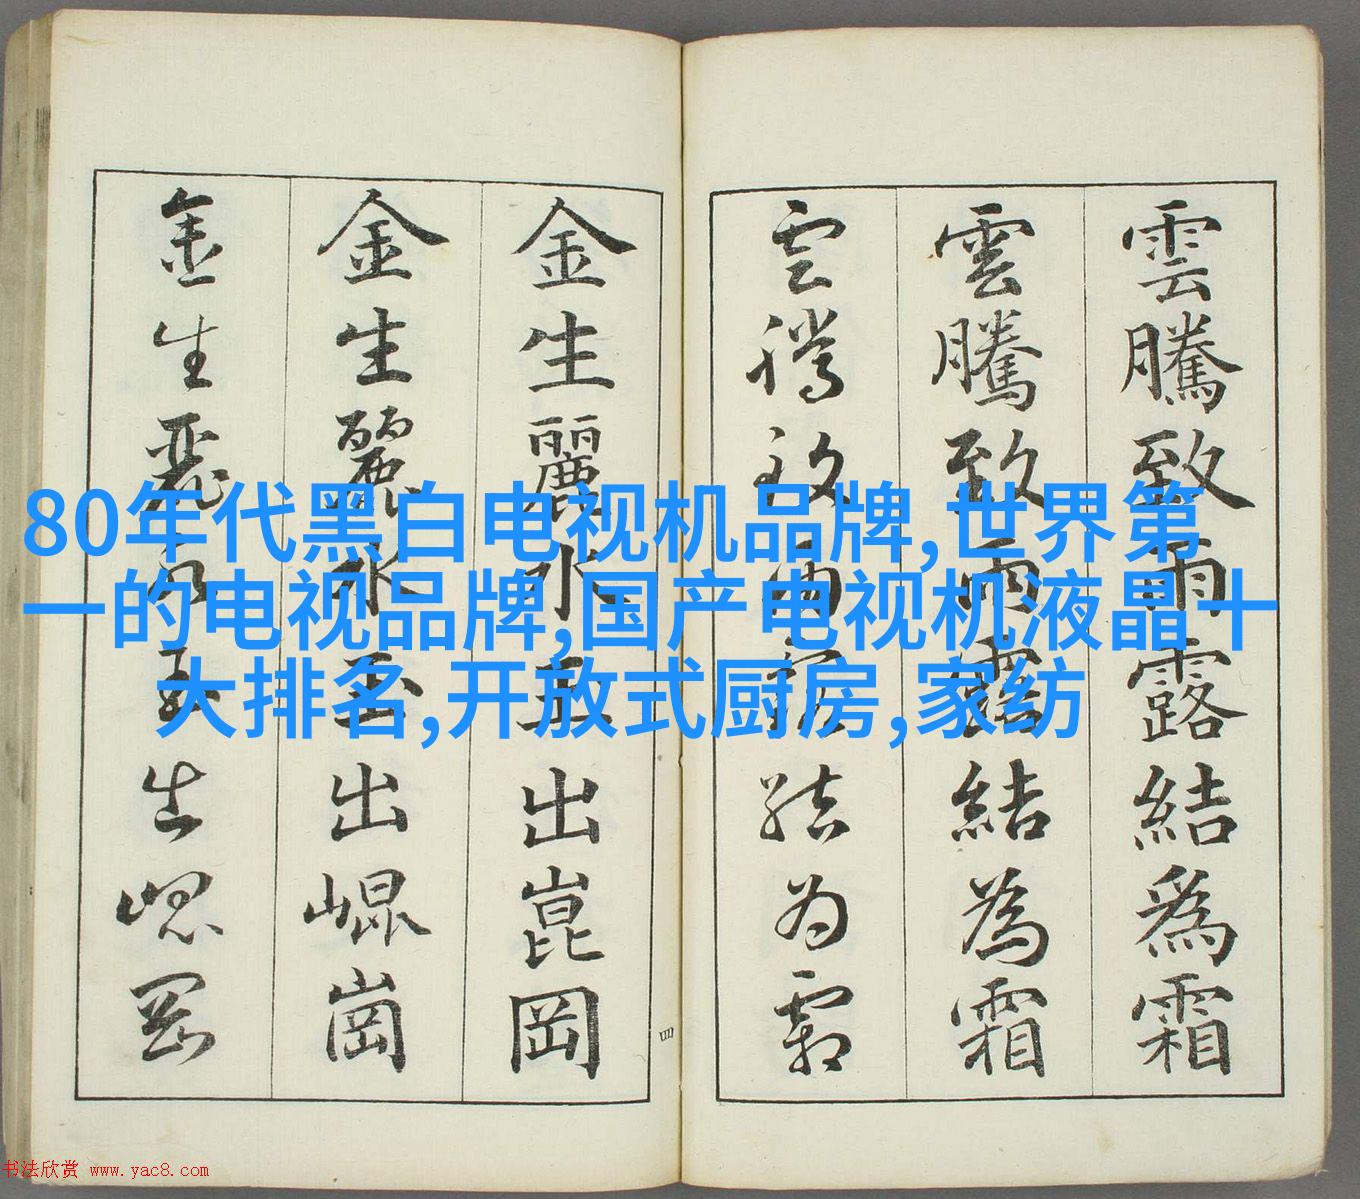 80年代黑白电视机品牌,世界第
一的电视品牌,国产电视机液晶十
大排名,开放式厨房,家纺
雲騰致雨露結爲霜
雲騰致雨露結為霜
雲騰致雨露結为霜
金生麗水玉出崑岡
金生麗水玉出崐崗
金生麗水玉出崐岡
四
书法欣赏 www.yac8.com